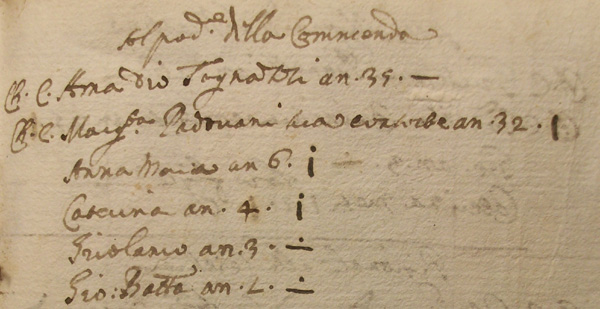 Al pod.e della Commenda
Ch. C. Amadio Tognatti an. 35. —
Ch. C. Marg.ta Padovani sua consorte an. 32. |
Anna Maria an 6. |
Caterina an. 4. |
Girolamo an. 3. —
Gio: Batta an. 2. —